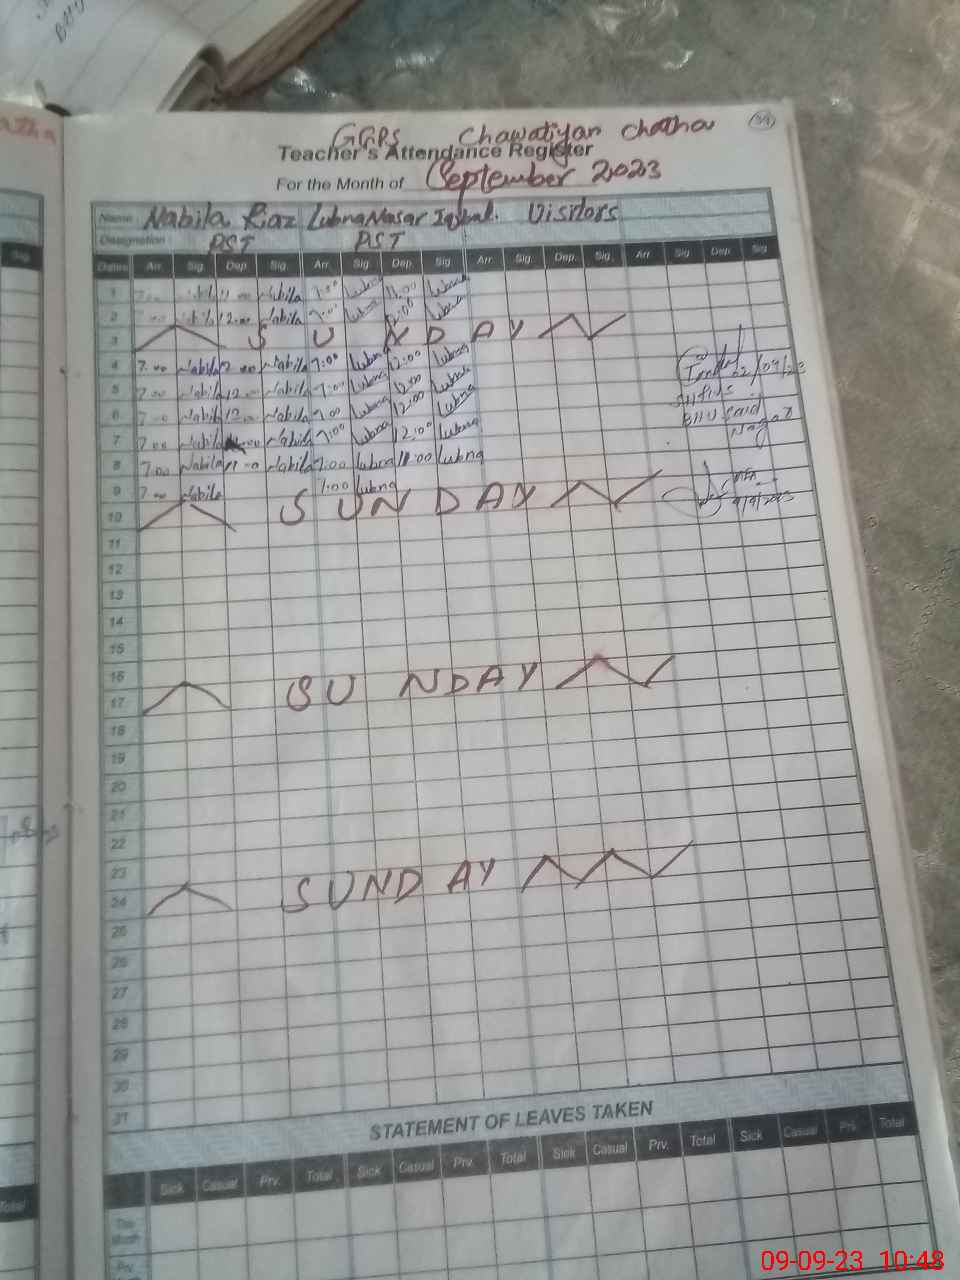 GGPS Chawatiyan Chatha 39
Teacher's Attendance Register
For the Month of September 2023
Name Nabila Riaz Lubna Nasar Iqbal. Visitors
Designation PST PST
Dates Arr. Sig. Dep. Sig. Arr. Sig. Dep. Sig. Arr. Sig. Dep. Sig. Arr. Sig. Dep. Sig.
1 7.00 Nabila Nabila 7:00 Lubna 11:00 Lubna
2 Nabila 12.00 Nabila 7:00 Lubna 12:00 Lubna
3 SUNDAY
4 7.00 Nabila 12.00 Nabila 7:00 Lubna 12:00 Lubna
5 7.00 Nabila 12.00 Nabila 7:00 Lubna 12:00 Lubna
6 7.00 Nabila 12.00 Nabila 7:00 Lubna 12:00 Lubna
7 7.00 Nabila Nabila 7:00 Lubna 12:00 Lubna
8 7.00 Nabila 11.00 Nabila 7:00 Lubna 11:00 Lubna
9 7.00 Nabila 7:00 Lubna
10 SUNDAY
02/09/23
BHU Said
Nagar
9/9/2023
11
12
13
14
15
16
17 SUNDAY
18
19
20
21
22
23
24 SUNDAY
25
26
27
28
29
30
31
STATEMENT OF LEAVES TAKEN
Sick Casual Prv. Total Sick Casual Prv. Total Sick Casual Prv. Total Sick Casual Prv. Total
This
Month
Prv.
09-09-23 10:48